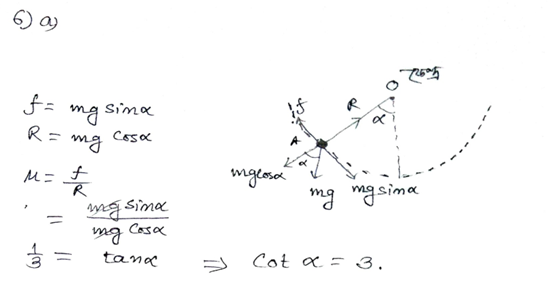 6) a)
f = mg sinα
R = mg cosα
μ = f/R
= mg sinα / mg cosα
1/3 = tanα ⇒ cot α = 3.
O
R
α
f
A
α
mgcosα
mg
mgsinα